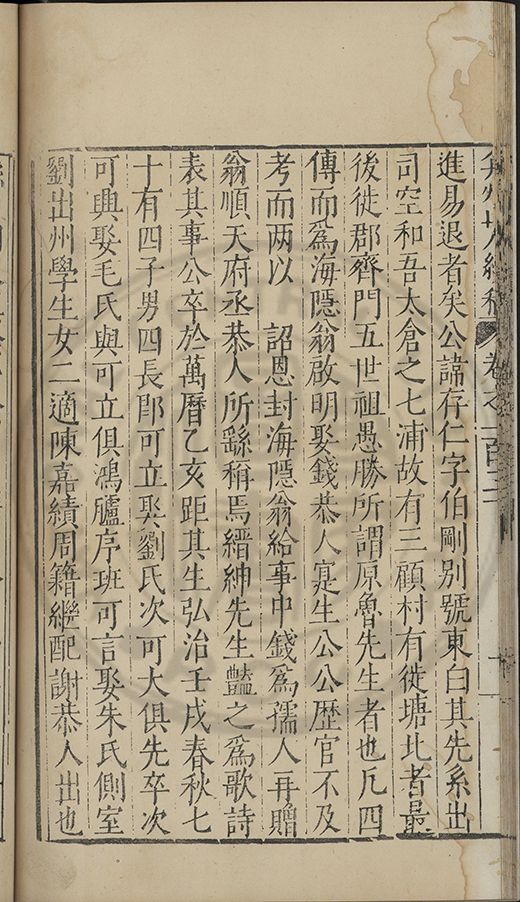 弇州山人續稿 卷之一百三
進易退者矣公諱存仁字伯剛別號東白其先系出
司空和吾太倉之七浦故有三顧村有徙塘北者最
後徙郡齊門五世祖愚勝所謂原魯先生者也凡四
傳而爲海隱翁啟明娶錢恭人寔生公公歷官不及
考而两以　詔恩封海隱翁給事中錢爲孺人再贈
翁順天府丞恭人所繇稱焉縉紳先生豔之爲歌詩
表其事公卒於萬曆乙亥距其生弘治壬戌春秋七
十有四子男四長卽可立娶劉氏次可大俱先卒次
可與娶毛氏與可立俱鴻臚序班可言娶朱氏側室
劉出州學生女二適陳嘉績周籍繼配謝恭人出也